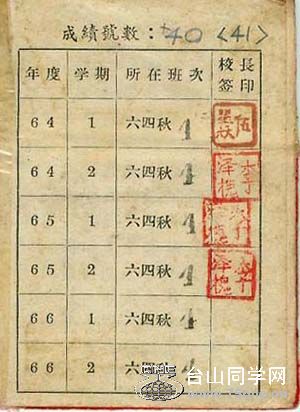 成績號數：40〈41〉
年度 學期 所在班次 校長簽印
64 1 六四秋 4
64 2 六四秋 4
65 1 六四秋 4
65 2 六四秋 4
66 1 六四秋 4
66 2 六四秋 4
台山同学网